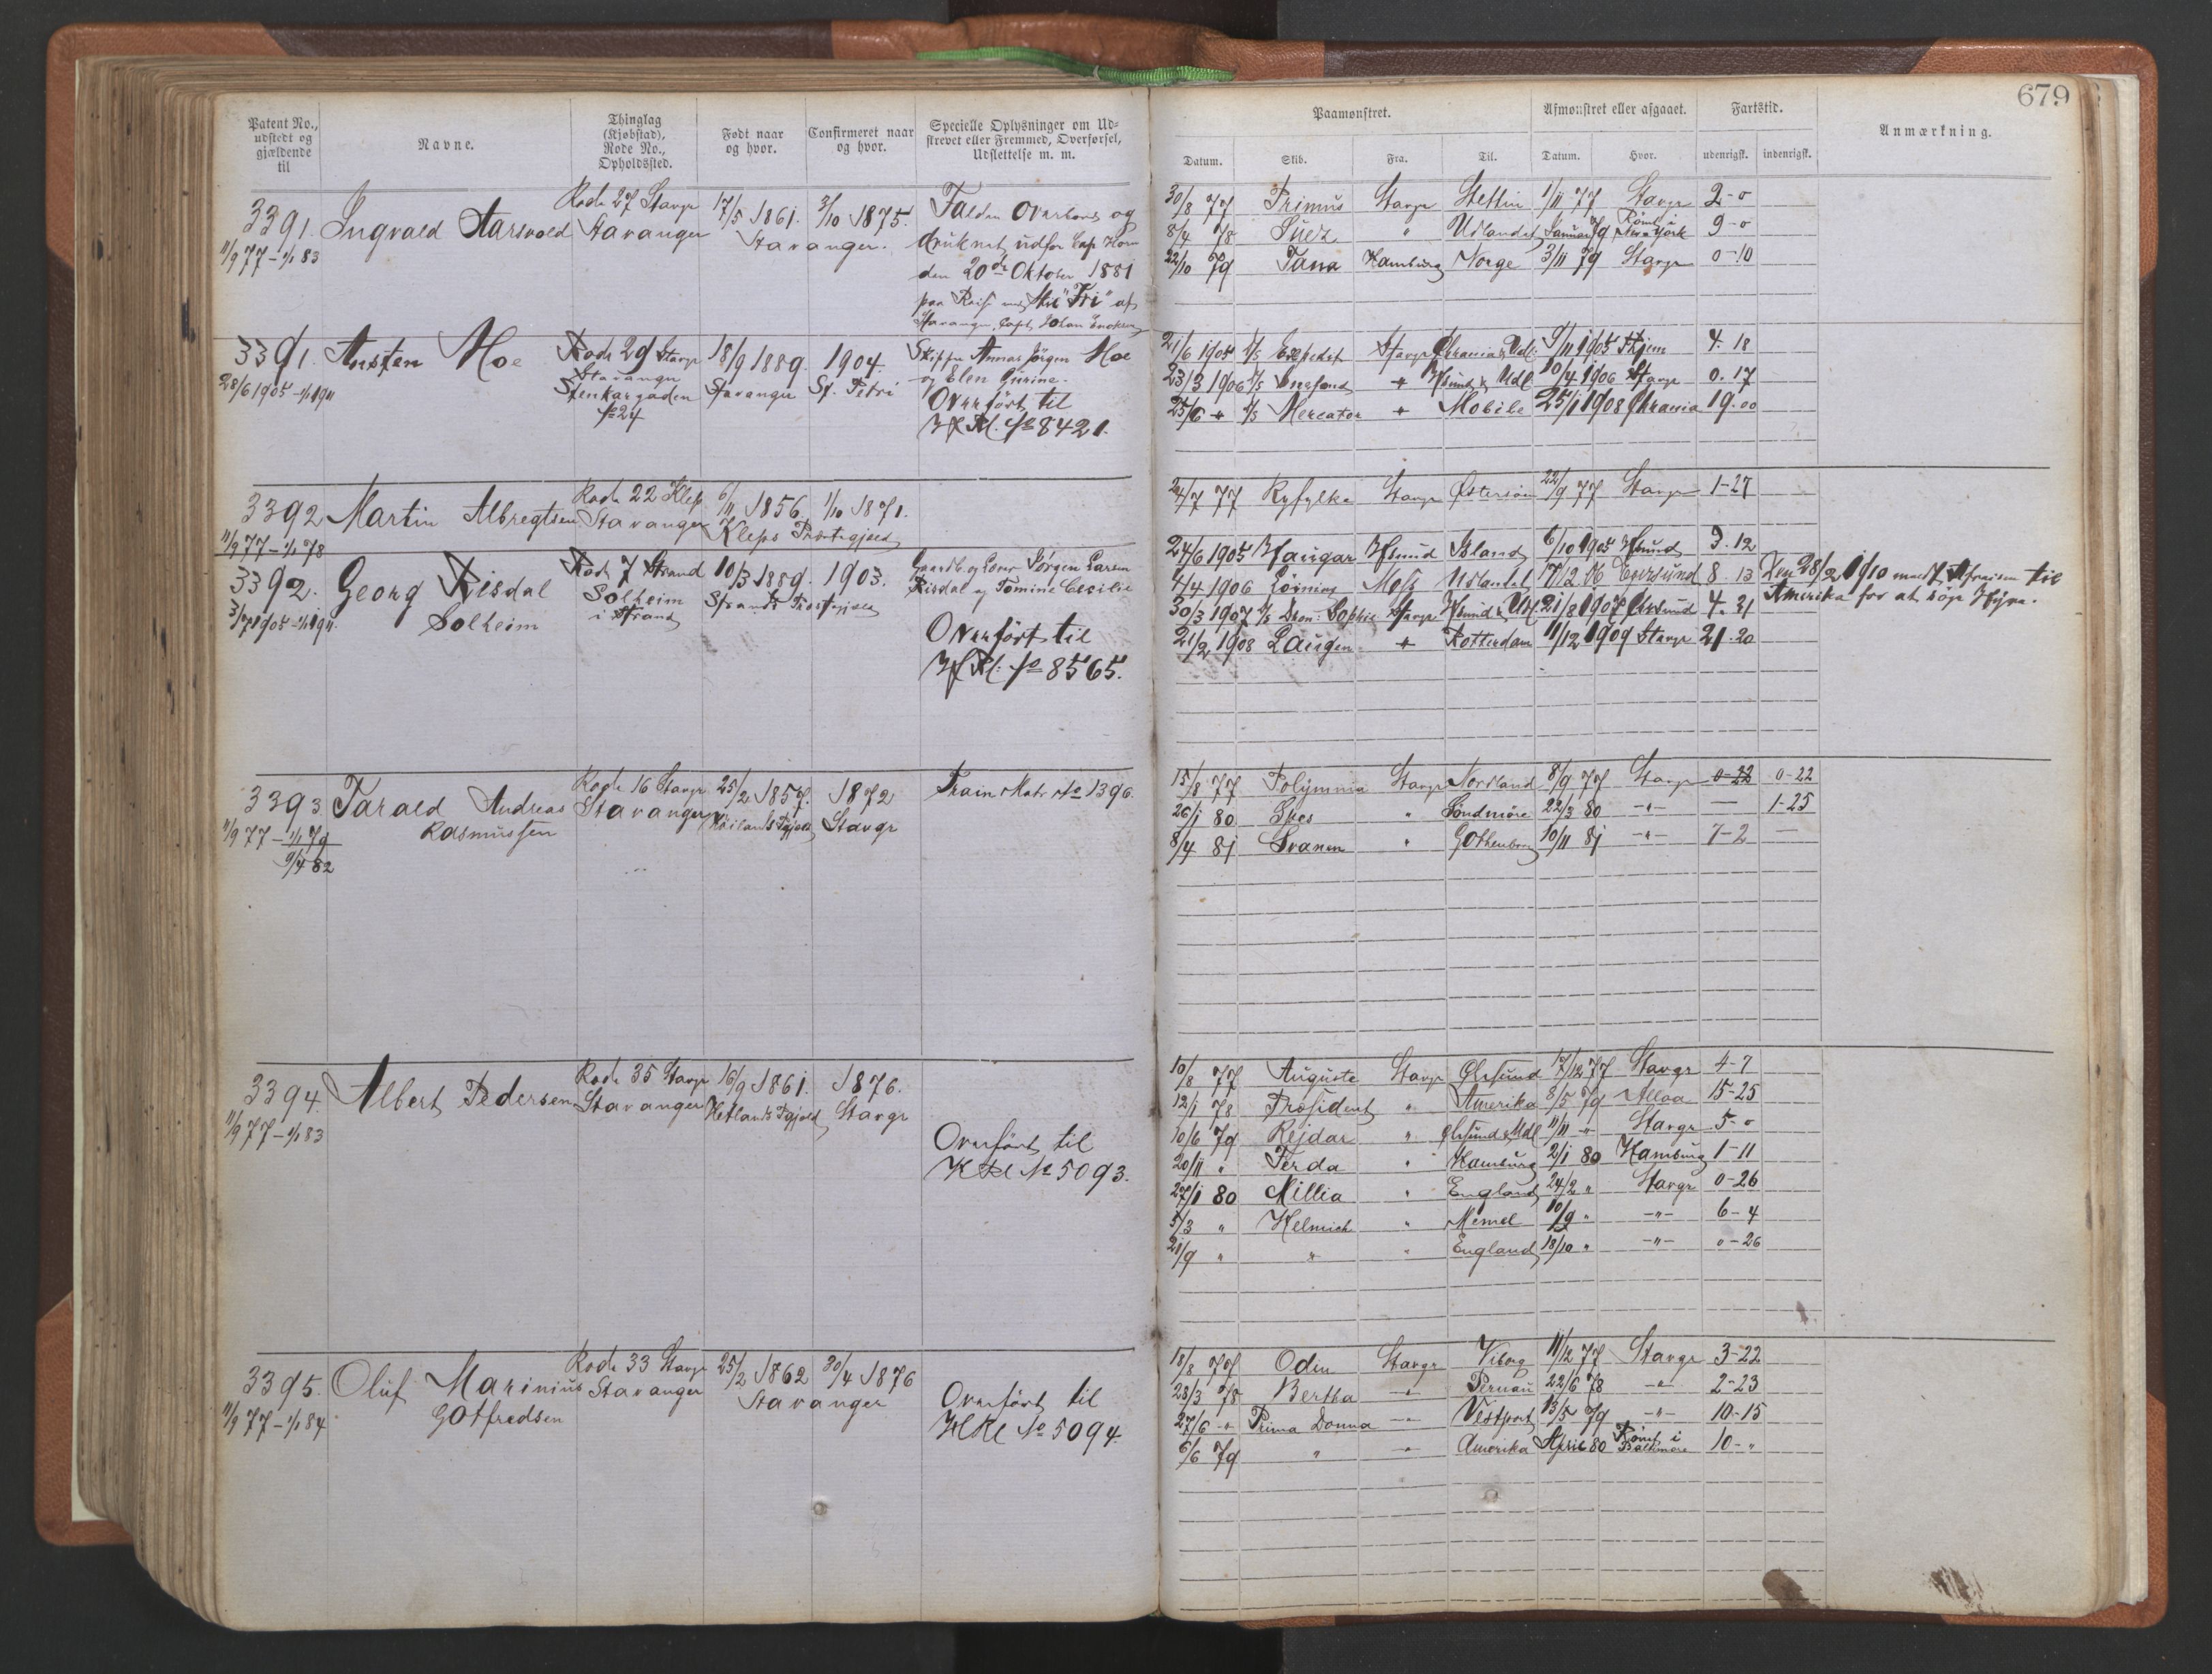 679
Patent No., udstedt og gjældende til
Navne.
Thinglag (Kjøbstad), Rode No., Opholdssted.
Født naar og hvor.
Confirmeret naar og hvor.
Specielle Oplysninger om Udskrevet eller Fremmed, Overførsel, Udslettelse m. m.
Paamønstret.
Afmønstret eller afgaaet.
Fartstid.
Anmærkning.
Datum. Skib. Fra. Til. Datum. Hvor. udenrigsk. indenrigsk.
3391. Ingvald Aarsvold Rode 27 Stavgr Stavanger 17/5 1861. 3/10 1875. Stavanger.
11/9 77 - 1/1 83
Falden overbord og
druknet udfor Cap Horn
den 20de Oktober 1881
paa Reise med Skr "Fri" af
Stavanger, Capt. Johan
30/8 77 Primus Stavgr Stettin 1/11 77 Stavgr 2-0
8/4 78 Suez " Udlandet Januar 79 Rømt i New York 9-0
22/10 79 Tana Hamburg Norge 3/11 79 Stavgr 0-10
3391. Austen Moe Rode 29 Stavgr 18/9 1889. 1904.
28/6 1905 - 1/1 1911
Stavanger
Stenkargaden Stavanger St. Petri
No 24
Skipper Annas Jörgen Moe
og Elen Gurine.
Overfört til
Hf Rl. No 8421.
21/6 1905 Stavgr Chrania & Udl. 9/11 1905 Thjem 4. 18
23/3 1906 Snefond " Hfsund & Udl 10/4 1906 Stavgr 0. 17
25/6 " Mercator " Mobile 25/1 1908 Chrania 19.00
3392 Martin Albregtsen Rode 22 Klep Stavanger 6/11 1856. 1/10 1871.
11/9 77 - 1/1 78 Kleps Præstegjeld
24/7 77 Ryfylke Stavgr Østersøen 22/9 77 Stavgr 1-27
3392. Georg Risdal Rode 7 Strand 10/3 1889. 1903.
3/7 1905 - 1/1 1911.
Solheim
Solheim i Strand Strands Præstegjeld
Gaardb. og Lods Jörgen Larsen
Risdal og Tomine Cecilie
Overfört til
Hf Rl. No 8565.
24/6 1905 Haugar Hfsund Island 6/10 1905 Hfsund 3. 12
4/4 1906 Moss Udlandet 17/12 06 Egersund 8. 13
30/3 1907 Dron. Sophie Stavgr Hfsund & Udl. 21/8 1907 4. 21
21/2 1908 Laugen " Rotterdam 11/12 1909 Stavgr 21. 20
Den 28/2 1910 meldt Afreisen til
Amerika for at söge Hyre.
3393. Tarald Andreas Rasmussen Rode 16 Stavgr Stavanger 25/2 1857. 1872
11/9 77 - 1/1 79
9/4 82
Høilands Pgjeld Stavgr
Train Matr No 1396.
15/8 77 Polymnia Stavgr Nordland 8/9 77 Stavgr 0-22 0-22
26/1 80 Spes " Søndmøre 22/3 80 -"- — 1-25
8/4 81 Svanen " Gothenborg 10/11 81 -"- 7-2 —
3394. Albert Pedersen Rode 35 Stavgr Stavanger 16/9 1861. 1876.
11/9 77 - 1/1 83
Hetlands Pgjeld Stavgr
Overfört til
H Rl No 5093.
10/8 77 Auguste Stavgr Ørsund 17/12 77 Stavgr 4-7
12/1 78 Præsident " Amerika 8/5 79 Alloa 15-25
10/6 79 Rejdar " Ørsund & Udl 11/11 " Stavgr 5-0
20/11 " Terda " Hamburg 2/1 80 Hamburg 1-11
27/1 80 Millia " England 24/2 " Stavgr 0-26
5/3 " Helmich " Memel 10/9 " -"- 6-4
21/9 " " " England 18/10 " -"- 0-26
3395. Oluf Marinius Gotfredsen Rode 33 Stavgr Stavanger 25/2 1862 30/4 1876
11/9 77 - 1/1 84
Stavanger
Overfört til
H Rl No 5094.
18/8 77 Odin Stavgr Viborg 11/12 77 Stavgr 3-22
28/3 78 Bertha -"- Pernau 22/6 78 -"- 2-23
27/6 " Prima Donna -"- Vestport 13/5 79 -"- 10-15
6/6 79 " -"- Amerika April 80 Rømt i Baltimore 10-"